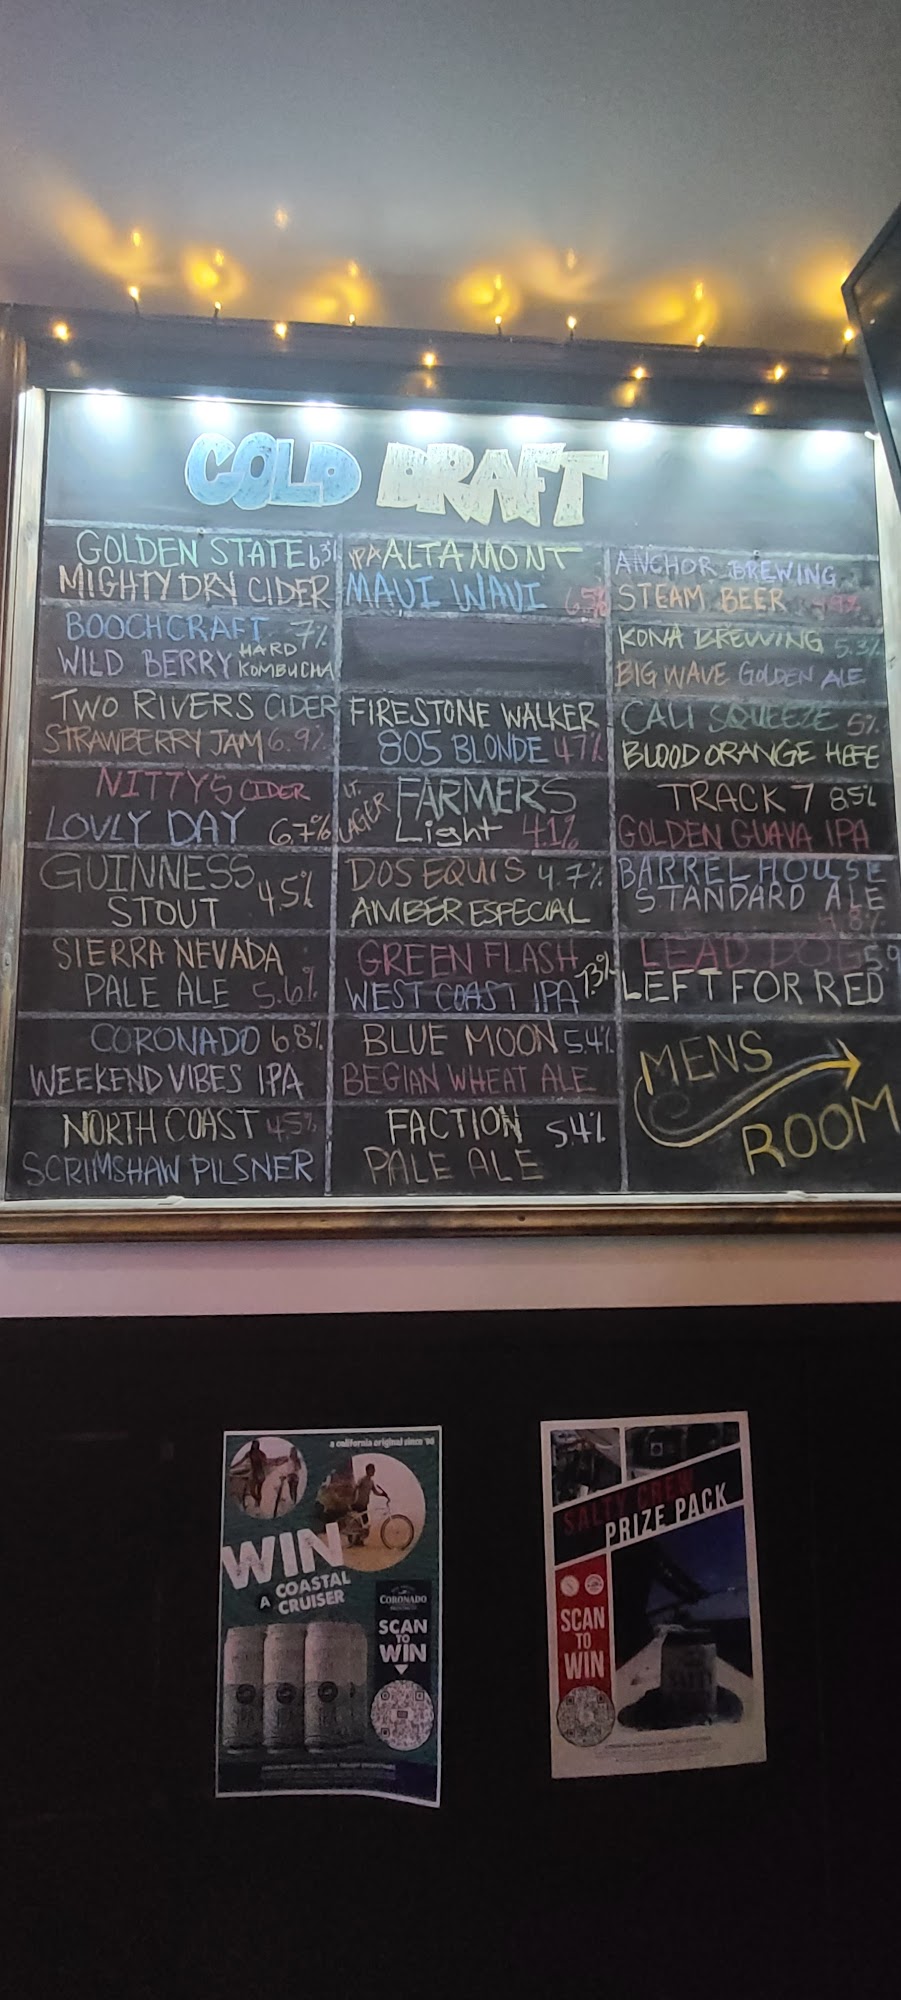 COLD DRAFT
GOLDEN STATE 6.3%
MIGHTY DRY CIDER
BOOCHCRAFT 7%
WILD BERRY HARD KOMBUCHA
TWO RIVERS CIDER
STRAWBERRY JAM 6.9%
NITTY'S CIDER
LOVLY DAY 6.7%
GUINNESS 4.5%
STOUT
SIERRA NEVADA
PALE ALE 5.6%
CORONADO 6.8%
WEEKEND VIBES IPA
NORTH COAST 4.5%
SCRIMSHAW PILSNER
IPA ALTAMONT
MAUI WAUI 6.5%
FIRESTONE WALKER
805 BLONDE 4.7%
LT. LAGER FARMERS
Light 4.1%
DOS EQUIS 4.7%
AMBER ESPECIAL
GREEN FLASH
WEST COAST IPA 7.3%
BLUE MOON 5.4%
BEGIAN WHEAT ALE
FACTION 5.4%
PALE ALE
ANCHOR BREWING
STEAM BEER 4.9%
KONA BREWING 5.3%
BIG WAVE GOLDEN ALE
CALI SQUEEZE 5%
BLOOD ORANGE HEFE
TRACK 7 8.5%
GOLDEN GUAVA IPA
BARREL HOUSE
STANDARD ALE
4.8%
LEAD DOG 5.9
LEFT FOR RED
MENS
ROOM
a california original since '96
WIN
A COASTAL
CRUISER
CORONADO
SCAN
TO
WIN
SALTY CREW
PRIZE PACK
SCAN
TO
WIN